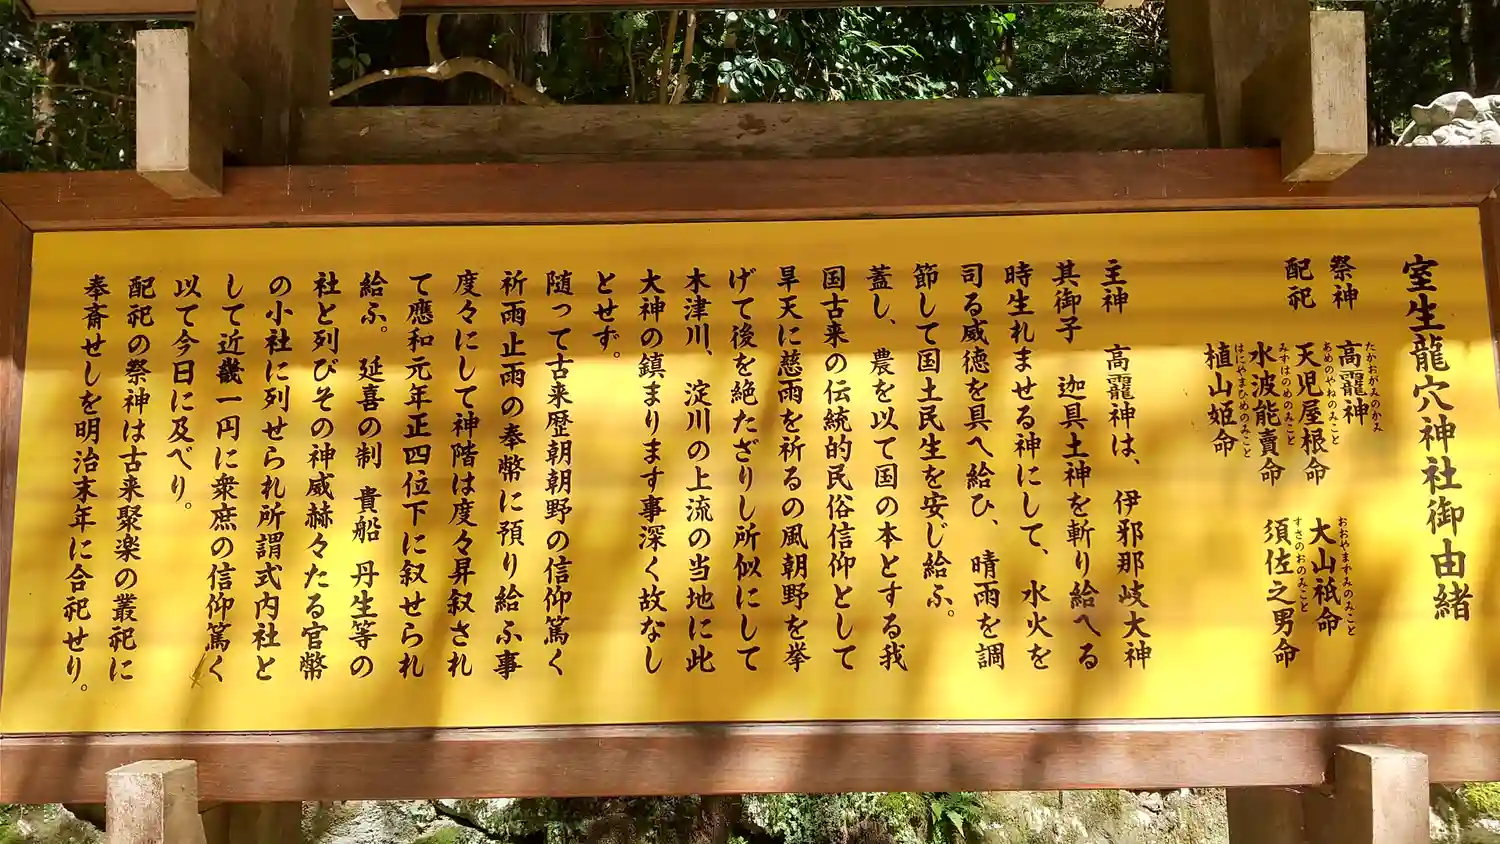 室生龍穴神社御由緒
祭神 高龗神 大山祇命
たかおがみのかみ おおやまずみのみこと
配祀 天児屋根命 須佐之男命
あめのやねのみこと すさのおのみこと
水波能賣命
みずはのめのみこと
植山姫命
はにやまひめのみこと
主神 高龗神は、伊邪那岐大神
其御子 迦具土神を斬り給へる
時生れませる神にして、水火を
司る威徳を具へ給ひ、晴雨を調
節して国土民生を安じ給ふ。
蓋し、農を以て国の本とする我
国古来の伝統的民俗信仰として
旱天に慈雨を祈るの風朝野を挙
げて後を絶たざりし所似にして
木津川、淀川の上流の当地に此
大神の鎮まります事深く故なし
とせず。
随って古来歴朝朝野の信仰篤く
祈雨止雨の奉幣に預り給ふ事
度々にして神階は度々昇叙され
て應和元年正四位下に叙せられ
給ふ。延喜の制 貴船 丹生等の
社と列びその神威赫々たる官幣
の小社に列せられ所謂式内社と
して近畿一円に衆庶の信仰篤く
以て今日に及べり。
配祀の祭神は古来聚楽の叢祀に
奉斎せしを明治末年に合祀せり。